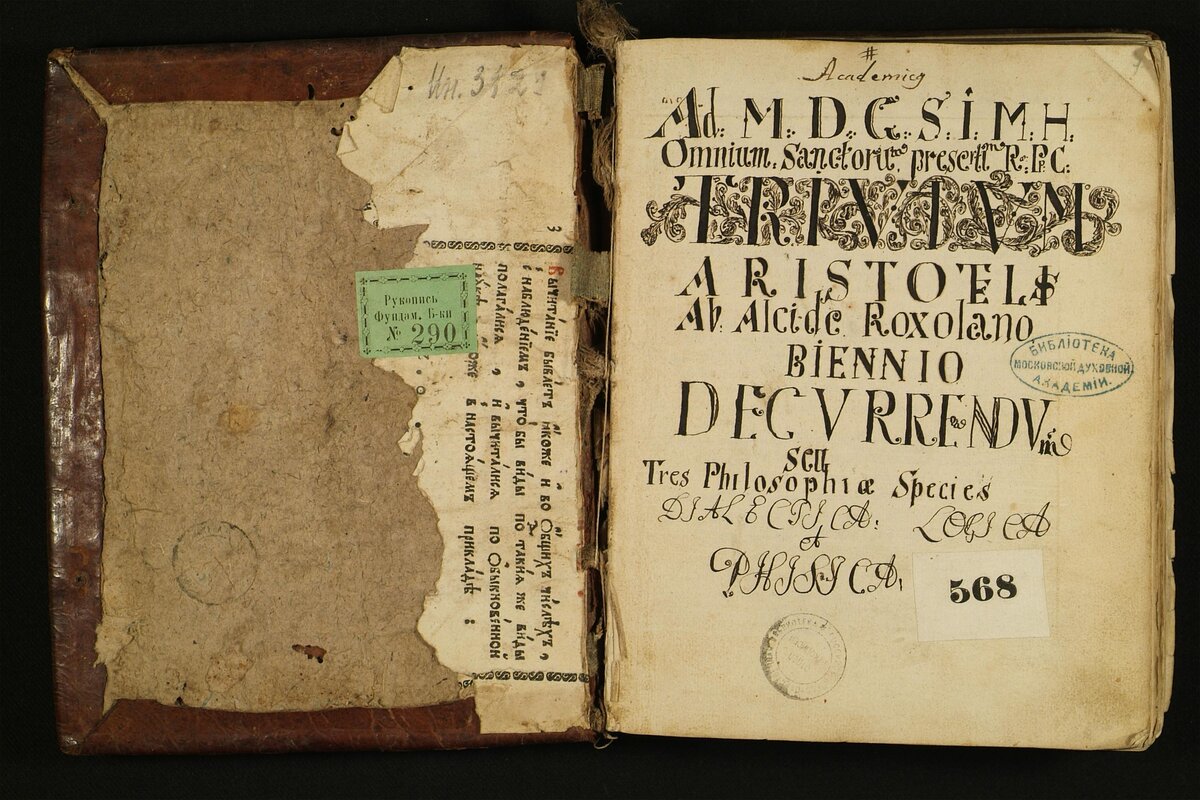 Ин. 3429
Рукопись
Фундам. Б-ки
№ 290
3
Вычитанїе бываетъ якоже и во общихъ числѣхъ,
с наблюденїемъ, что бы виды по такия же виды
полагалися, и вычиталися по обыкновенной
в настоящемъ прикладѣ :
#
Academicų
Ad: M: D: G: S: I: M: H:
Omnium Sanctorũ, presertĩ R: P: C:
TRIVIVM
ARISTOTELIS
Ab Alcide Roxolano
BIENNIO
DECVRRENDVm
seu
Tres Philosophiæ Species
DIALECTICA: LOGICA
et
PHISICA,
БИБЛІОТЕКА
МОСКОВСКОЙ ДУХОВНОЙ
АКАДЕМІИ.
568